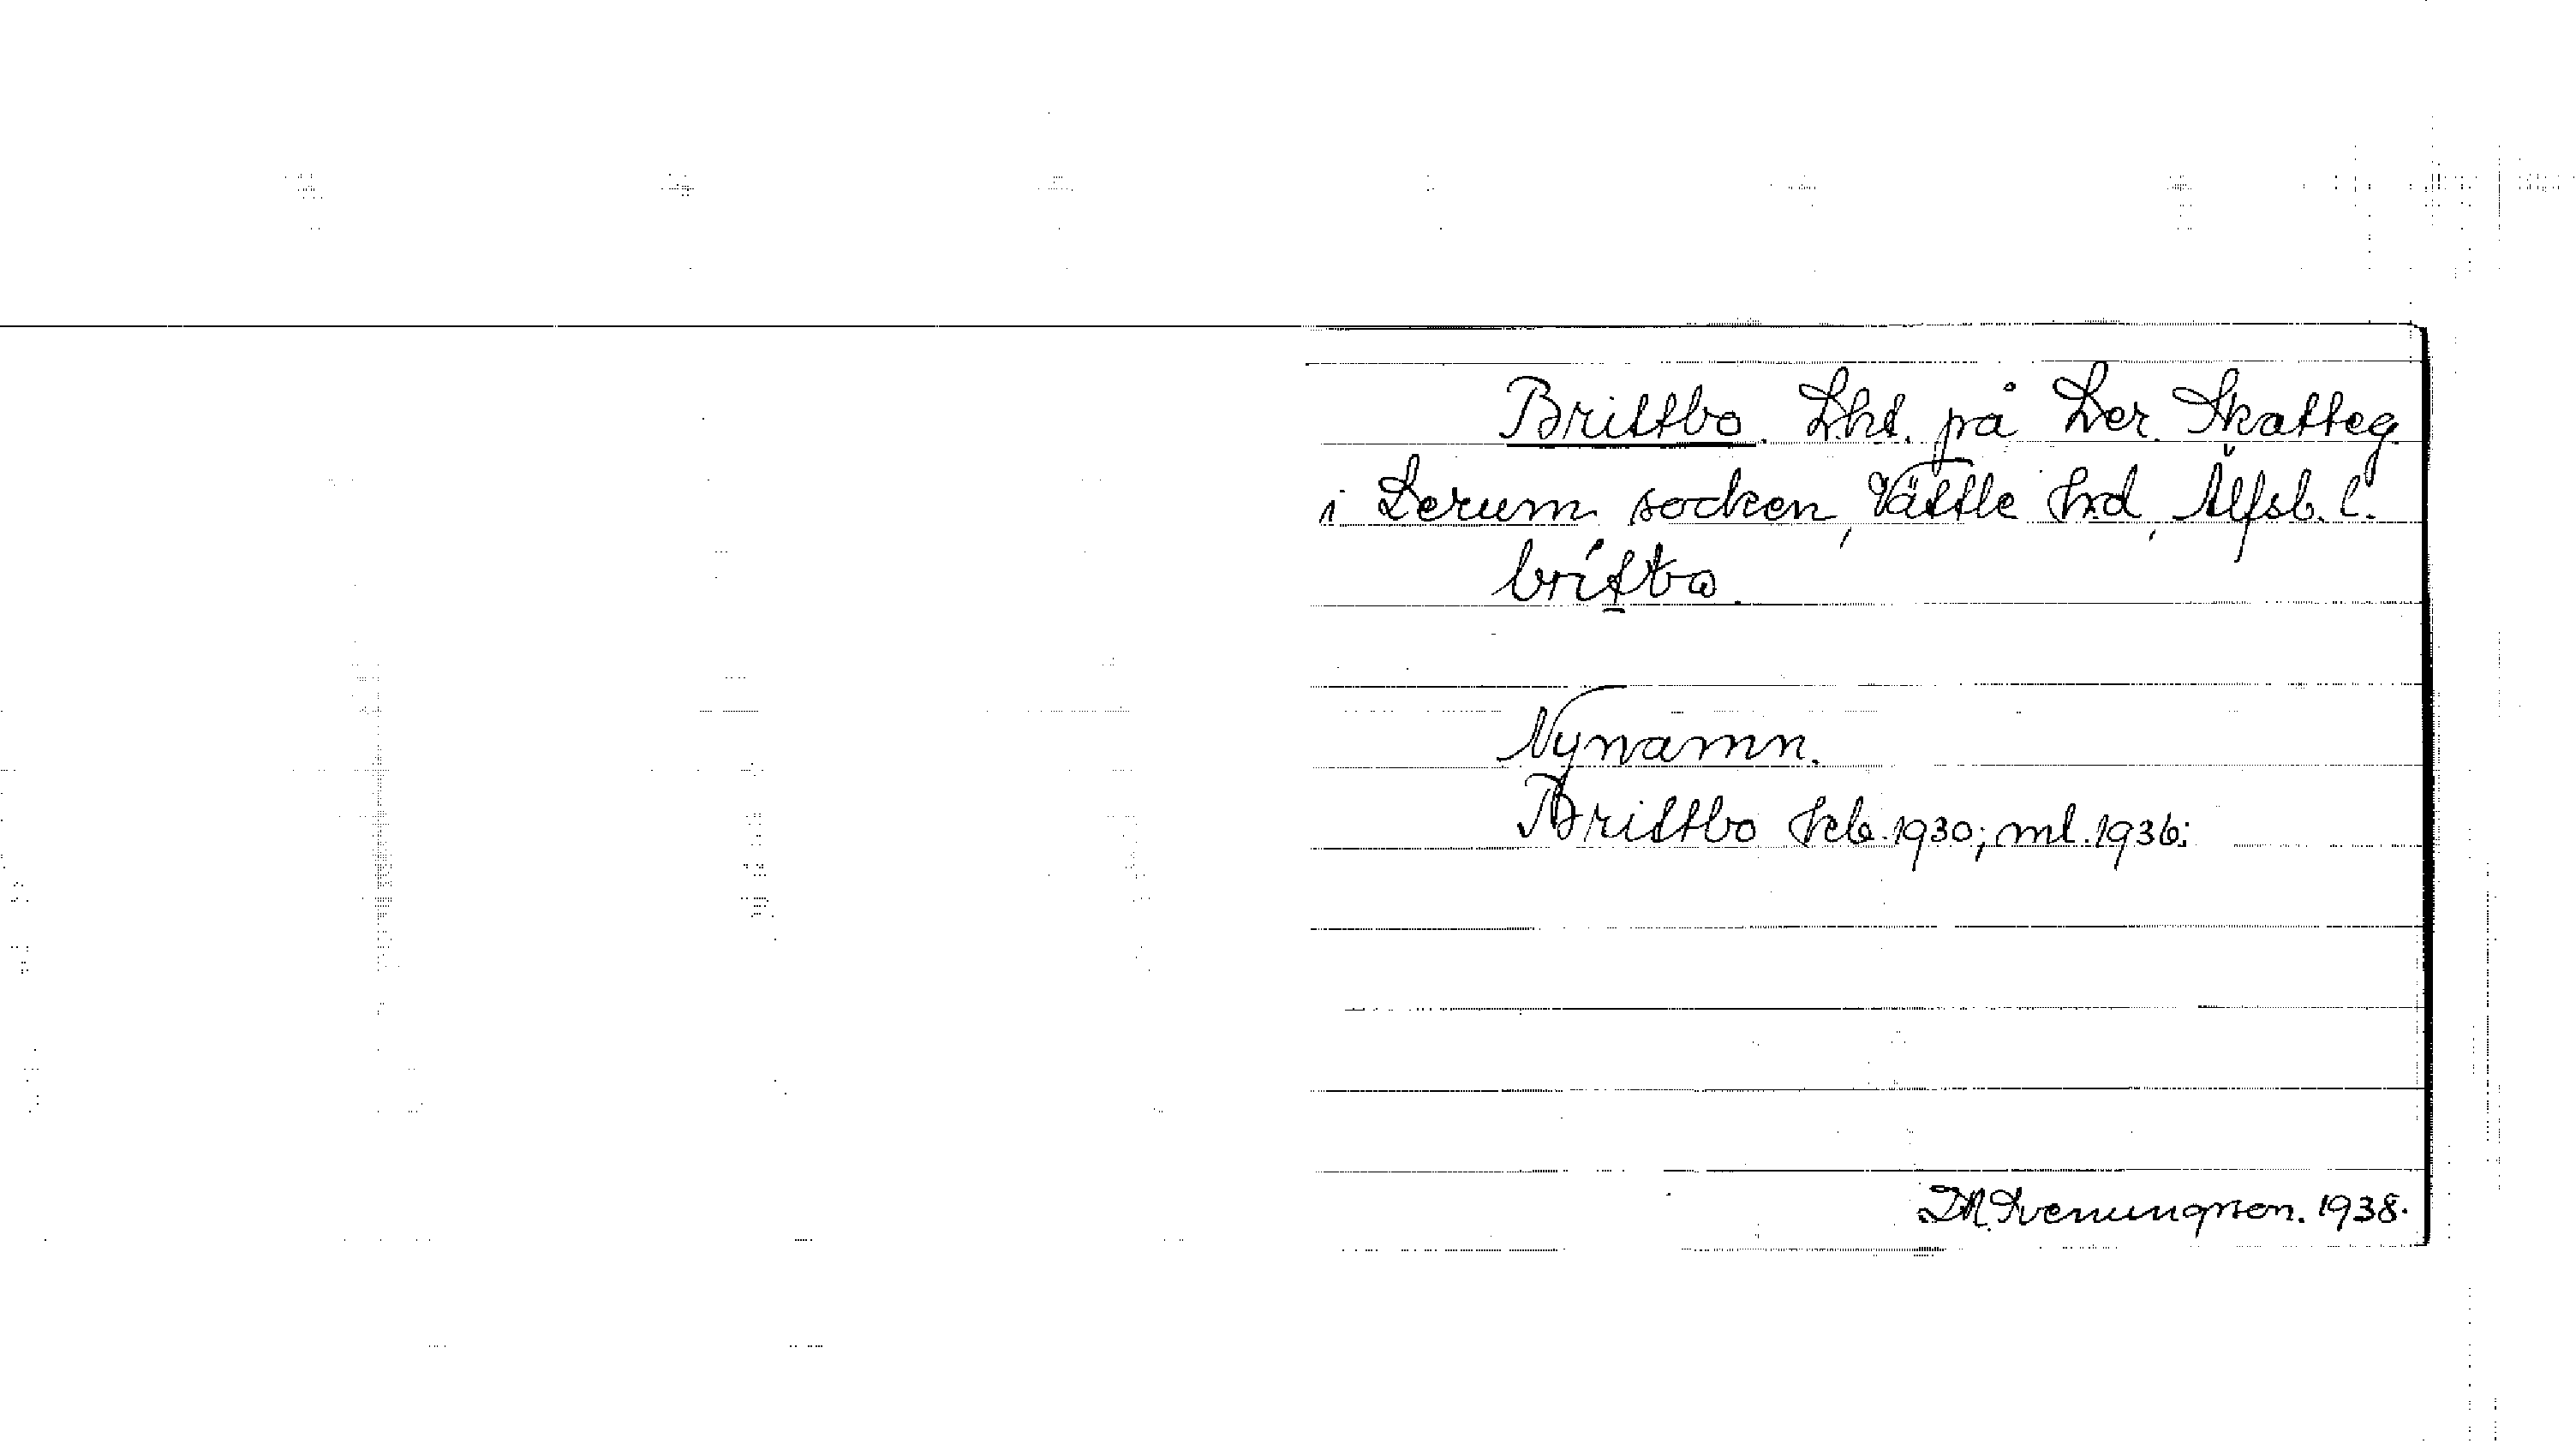 Brittbo. Lht. på Ler. Skatteg.
i Lerum socken, Vättle hd, Älfsb. l.
brítbo.
Nynamn.
Brittbo kb. 1930; ml. 1936;
D.A. Svenungsson. 1938.